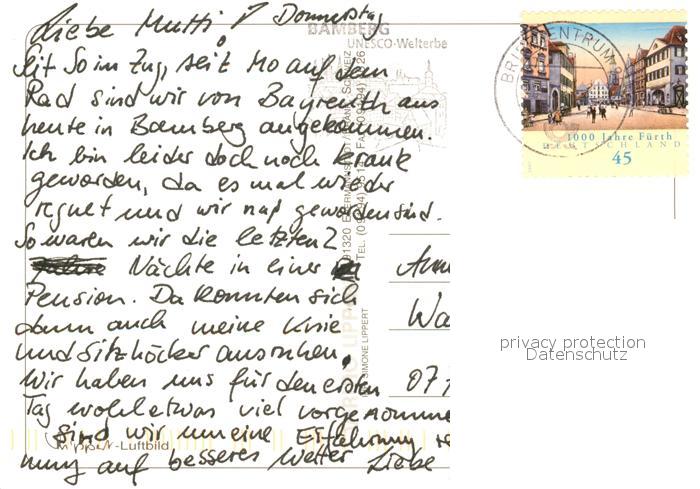 Liebe Mutti! Donnerstag
Seit So im Zug, seit Mo auf dem
Rad sind wir von Bayreuth aus
heute in Bamberg angekommen.
Ich bin leider doch noch krank
geworden, da es mal wieder
regnet und wir naß geworden sind.
So waren wir die letzten 2
Nächte in einer
Pension. Da konnten sich
dann auch meine Knie
und Sitzhöcker ausruhen.
Wir haben uns für den ersten
Tag wohl etwas viel vorgenomme
sind wir um eine Erfahrung
nung auf besseres Wetter Liebe
BAMBERG
UNESCO-Welterbe
BRIEFZENTRUM
1000 Jahre Fürth
DEUTSCHLAND
45
Wa
07
SIMONE LIPPERT
-Luftbild
privacy protection
Datenschutz